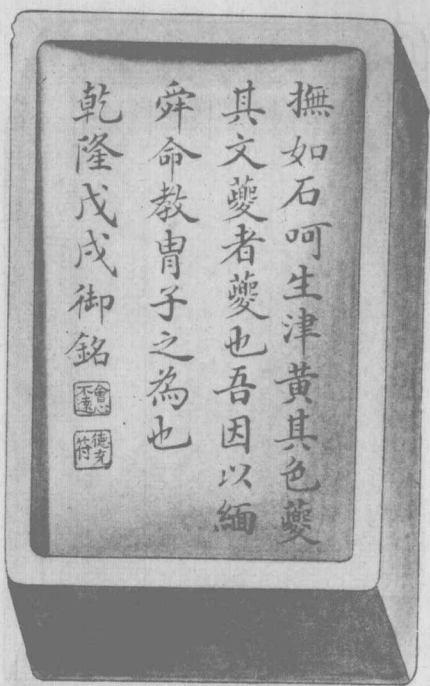 撫如石呵生津黃其色夔
其文夔者夔也吾因以緬
舜命教冑子之為也
乾隆戊戌御銘
會心不遠
德充符